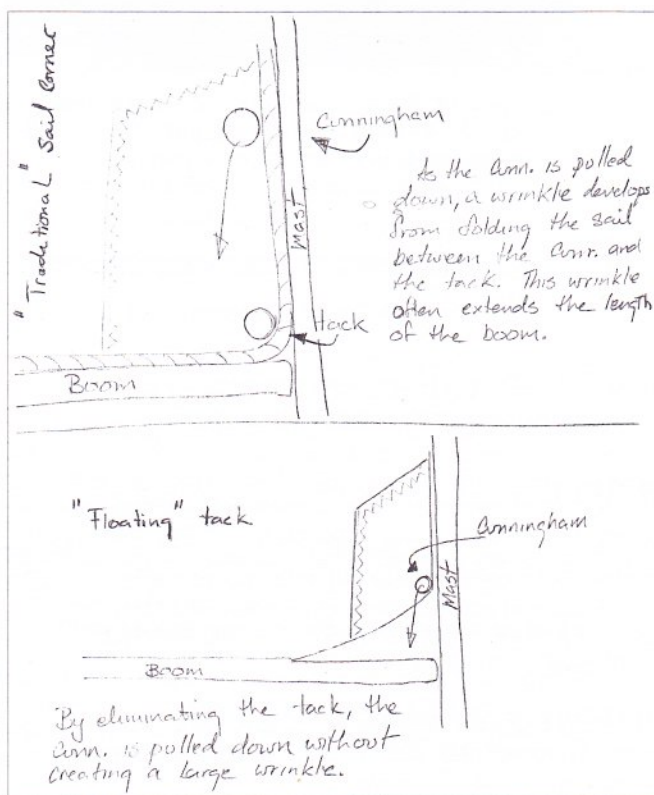 "Traditional" Sail Corner
Cunningham
Mast
tack
Boom
As the Cunn. is pulled
down, a wrinkle develops
from folding the sail
between the Cunn. and
the tack. This wrinkle
often extends the length
of the boom.
"Floating" tack
Cunningham
Mast
Boom
By eliminating the tack, the
Cunn. is pulled down without
creating a large wrinkle.